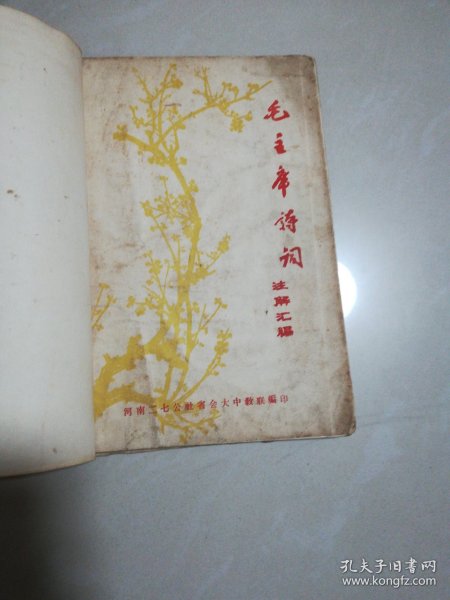 毛主席诗词
注解汇编
河南二七公社省会大中教联编印
孔夫子旧书网
www.kongfz.com